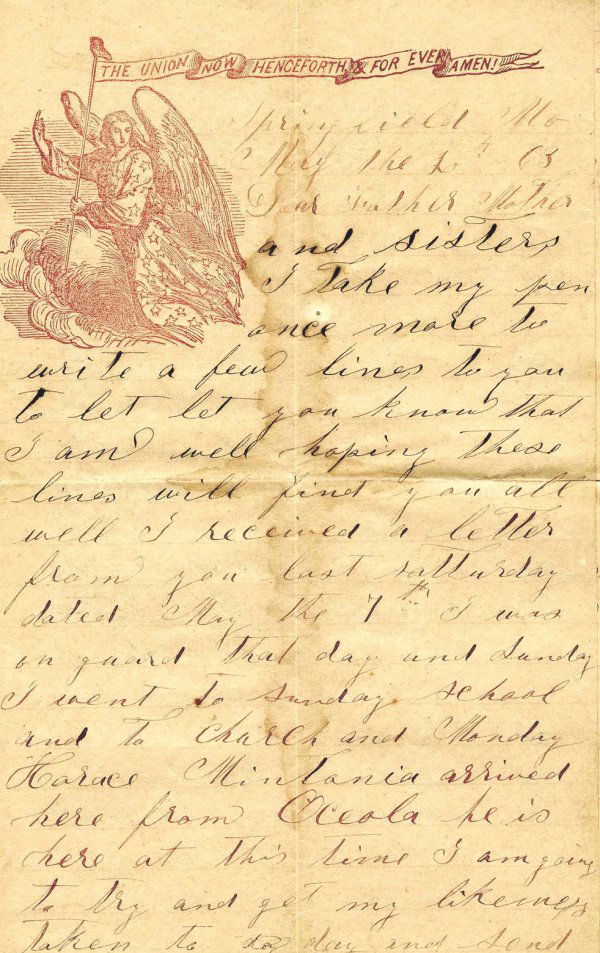 THE UNION NOW HENCEFORTH & FOR EVER AMEN!
Springfield Mo
May the th 63
Dear Father Mother
and sisters
I take my pen
once more to
write a few lines to you
to let let you know that
I am well hoping these
lines will find you all
well I received a letter
from you last satturday
dated May the 7th I was
on guard that day and Sunday
I went to sunday school
and to church and Monday
Horace arrived
here from Oceola he is
here at this time I am going
to try and get my likeness
taken to day and send